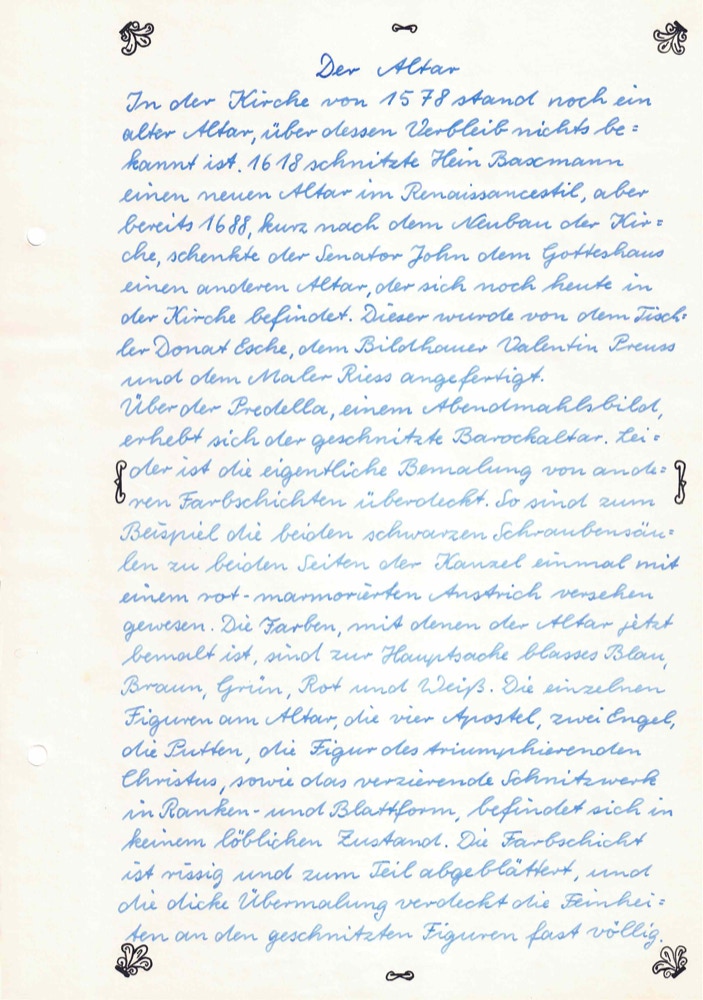 Der Altar
In der Kirche von 1578 stand noch ein
alter Altar, über dessen Verbleib nichts be=
kannt ist. 1618 schnitzte Hein Baxmann
einen neuen Altar im Renaissancestil, aber
bereits 1688, kurz nach dem Neubau der Kir=
che, schenkte der Senator John dem Gotteshaus
einen anderen Altar, der sich noch heute in
der Kirche befindet. Dieser wurde von dem Tisch=
ler Donat Esche, dem Bildhauer Valentin Preuss
und dem Maler Riess angefertigt.
Über der Predella, einem Abendmahlsbild,
erhebt sich der geschnitzte Barockaltar. Lei=
der ist die eigentliche Bemalung von ande=
ren Farbschichten überdeckt. So sind zum
Beispiel die beiden schwarzen Schraubensäu=
len zu beiden Seiten der Kanzel einmal mit
einem rot-marmorierten Anstrich versehen
gewesen. Die Farben, mit denen der Altar jetzt
bemalt ist, sind zur Hauptsache blasses Blau,
Braun, Grün, Rot und Weiß. Die einzelnen
Figuren am Altar, die vier Apostel, zwei Engel,
die Putten, die Figur des triumphierenden
Christus, sowie das verzierende Schnitzwerk
in Ranken- und Blattform, befindet sich in
keinem löblichen Zustand. Die Farbschicht
ist rissig und zum Teil abgeblättert, und
die dicke Übermalung verdeckt die Feinhei=
ten an den geschnitzten Figuren fast völlig.